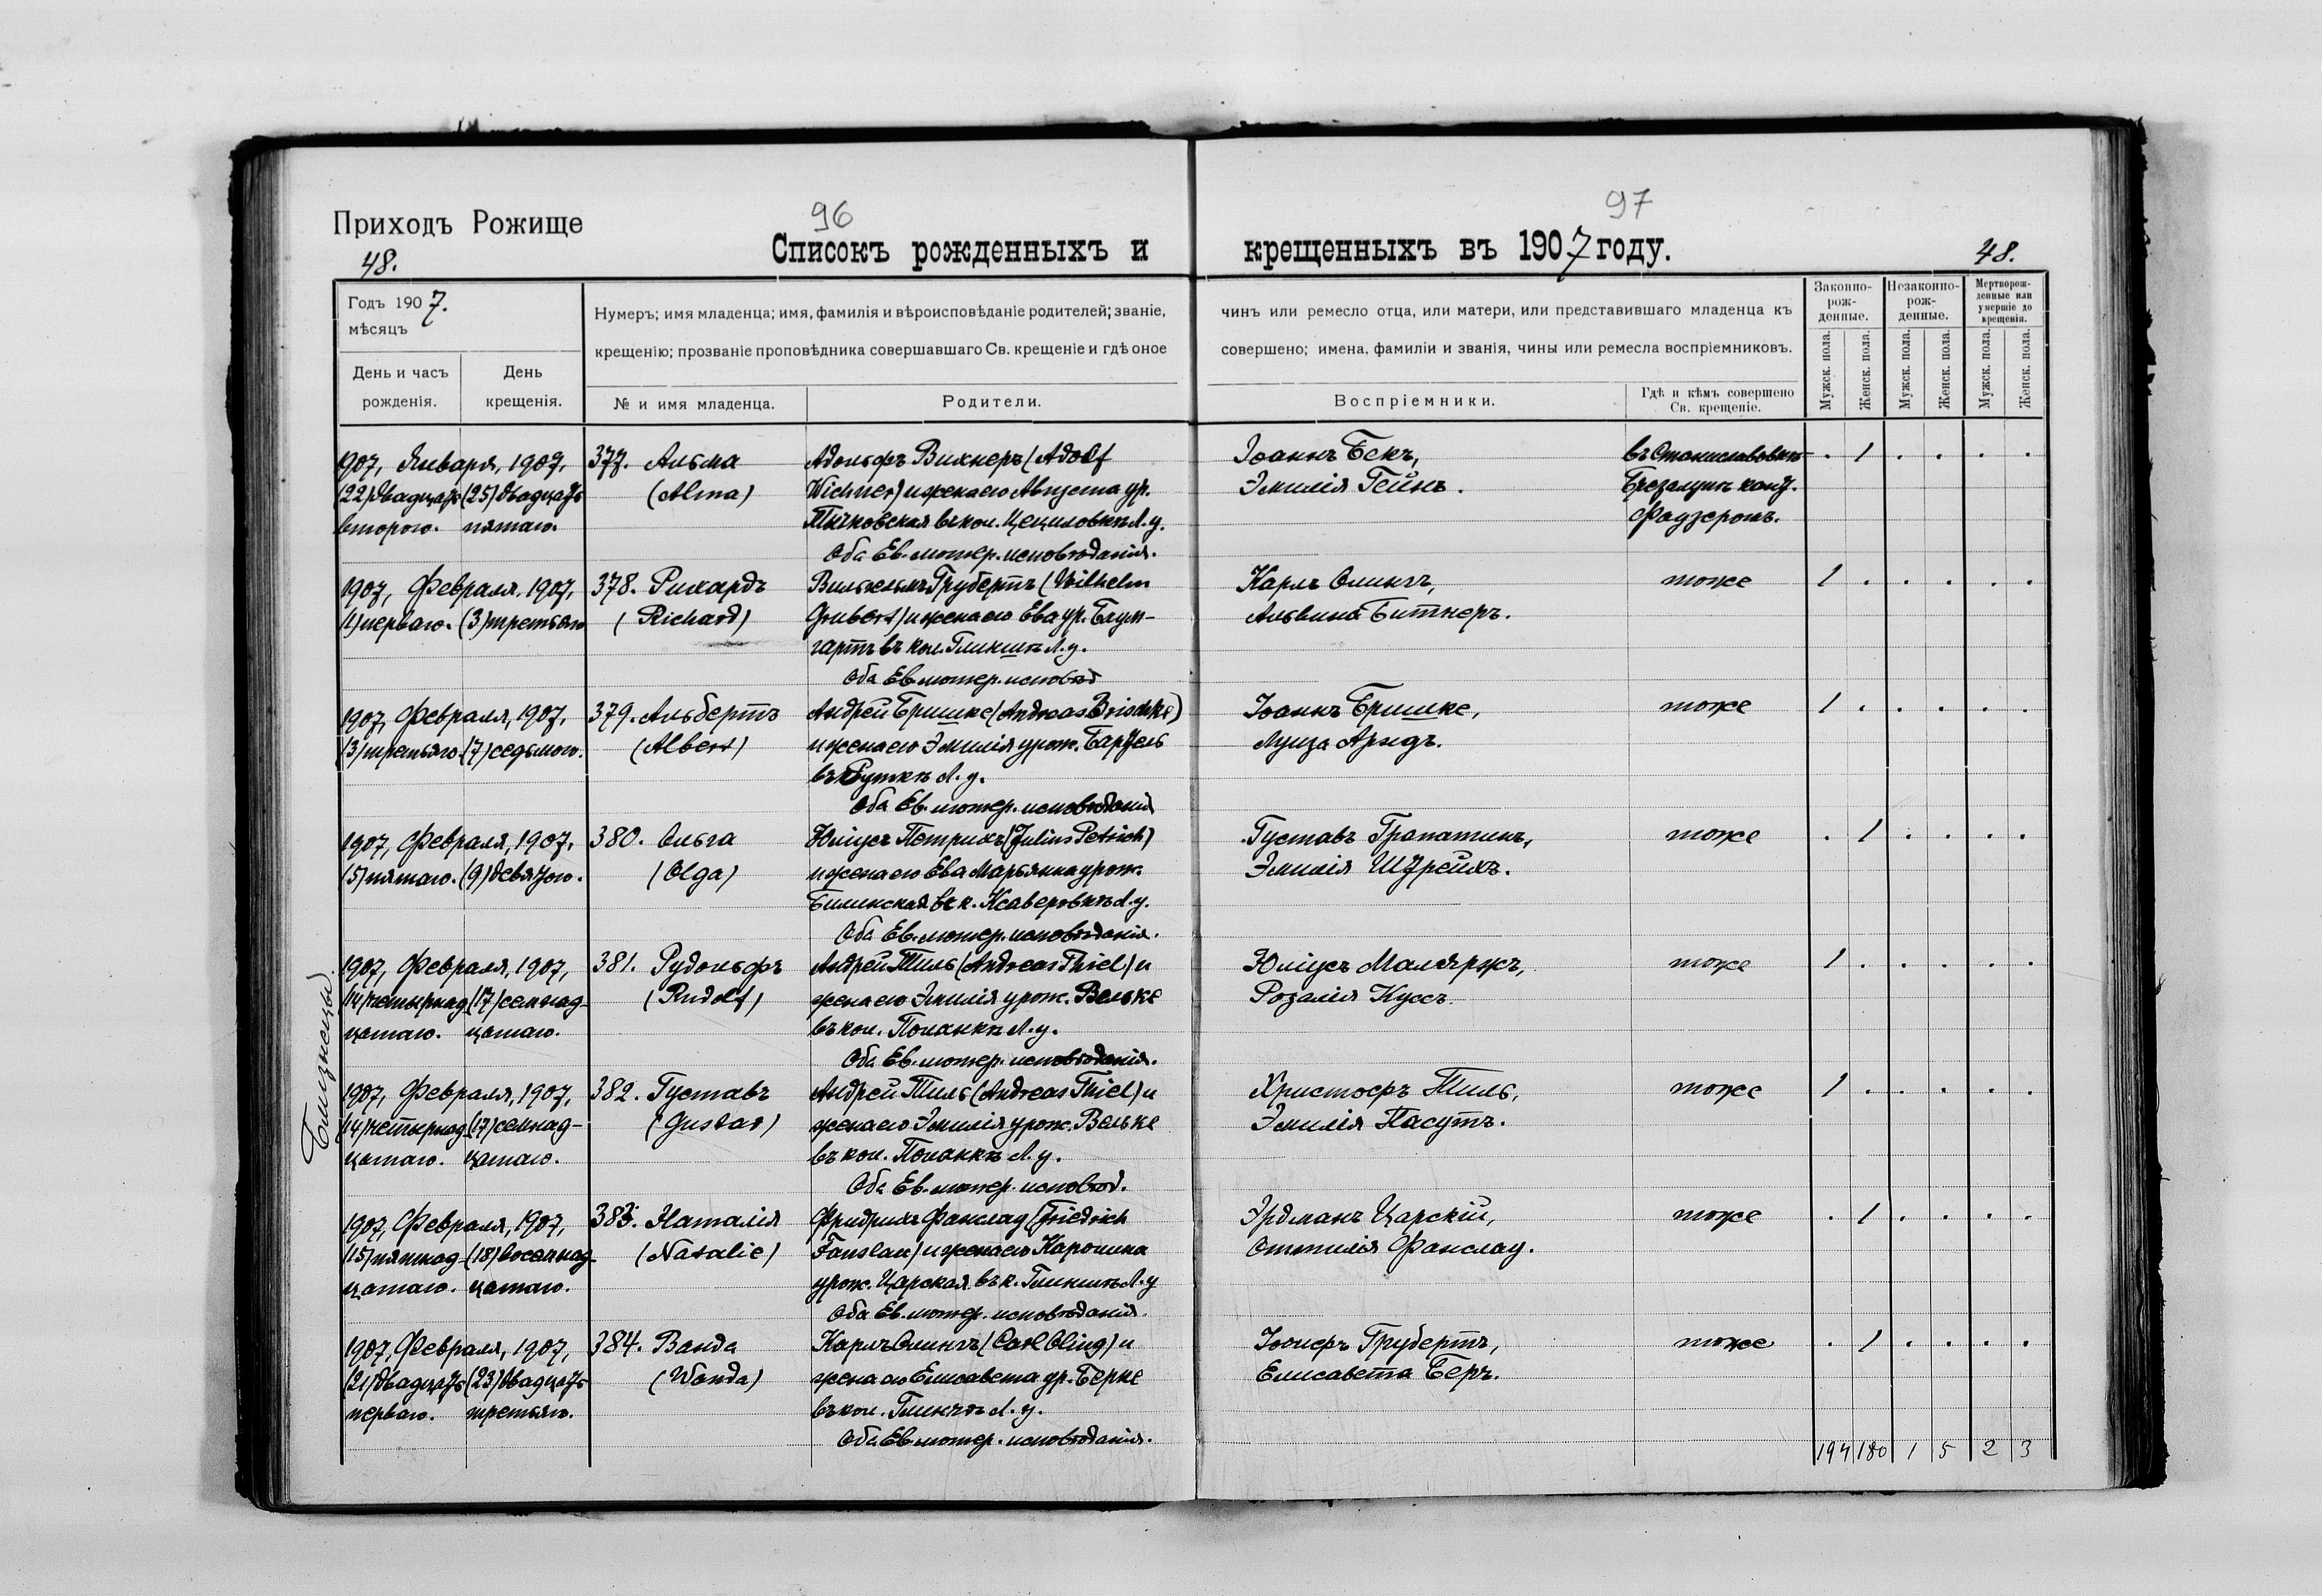 96
97
Приходъ Рожище
48.
Списокъ рожденныхъ и крещенныхъ въ 1907 году.
48.
Годъ 1907.
мѣсяцъ
День и часъ рожденія.
День крещенія.
Нумеръ; имя младенца; имя, фамилія и вѣроисповѣданіе родителей; званіе, чинъ или ремесло отца, или матери, или представившаго младенца къ
крещенію; прозваніе проповѣдника совершавшаго Св. крещеніе и гдѣ оное совершено; имена, фамиліи и званія, чины или ремесла воспріемниковъ.
№ и имя младенца.
Родители.
Воспріемники.
Гдѣ и кѣмъ совершено Св. крещеніе.
Законно-рож-денные.
Незаконно-рож-денные.
Мертворож-денные или умершіе до крещенія.
Мужск. пола.
Женск. пола.
Мужск. пола.
Женск. пола.
Мужск. пола.
Женск. пола.
1907, Января, 1907, 377. Альма Адольфъ Вихнеръ (Adolf Іоаннъ Бекъ, въ Станиславовкѣ . 1 . . . .
(22) двадцать (25) двадцать (Alma) Wichner) и жена его Августа ур. Эмилія Гейнъ.
второго. пятаго. въ кол. Цециловкѣ Л. у.
Оба Ев.-лютер. исповѣданія.
1907, Февраля, 1907, 378. Рихардъ Вильгельмъ Грубертъ (Wilhelm Карлъ Олингъ, тоже 1 . . . . .
(1) перваго. (3) третьяго (Richard) Grubert) и жена его Ева ур. Баум- Альвина Битнеръ.
гартъ въ кол. Глинище Л. у.
Оба Ев.-лютер. исповѣд
1907, Февраля, 1907, 379. Альбертъ Андрей Бришке (Andreas Brischke) Іоаннъ Бришке, тоже 1 . . . . .
(3) третьяго. (7) седьмого. (Albert) и жена его Эмилія урож. Бартель Луиза Арндъ.
Л. у.
Оба Ев.-лютер. исповѣданія
1907, Февраля, 1907, 380. Ольга Юліусъ Петрихъ (Julius Petrich) Густавъ Грапатинъ, тоже . 1 . . . .
(5) пятаго. (9) девятого. (Olga) и жена его Ева Марьянна урож. Эмилія Штрейхъ.
Билинская въ к. Ксаверовкѣ Л. у.
Оба Ев.-лютер. исповѣданія.
Близнецы.
1907, Февраля, 1907, 381. Рудольфъ Андрей Тиль (Andreas Thiel) и Юліусъ Маляржъ, тоже 1 . . . . .
(14) четырнад- (17) семнад- (Rudolf) жена его Эмилія урож. Вельке Розалія Куссъ
цатаго. цатаго. въ кол. Поланкѣ Л. у.
Оба Ев.-лютер. исповѣданія.
1907, Февраля, 1907, 382. Густавъ Андрей Тиль (Andreas Thiel) и Христофъ Тиль, тоже 1 . . . . .
(14) четырнад- (17) семнад- (Gustav) жена его Эмилія урож. Вельке Эмилія Пасутъ.
цатаго. цатаго. въ кол. Поланкѣ Л. у.
Оба Ев.-лютер. исповѣд.
1907, Февраля, 1907, 383. Наталія Фридрихъ Фанслау (Friedrich Эрдманъ Царскій, тоже . 1 . . . .
(15) пятнад- (18) восемнад- (Natalie) Fanslau) и жена его Каролина Оттилія Фанслау.
цатаго. цатаго. урож. Царская въ к. Глинище Л. у
Оба Ев.-лютер. исповѣданія.
1907, Февраля, 1907, 384. Ванда Карлъ Олингъ (Carl Oling) и Грубертъ, тоже . 1 . . . .
(21) двадцать (23) двадцать (Wanda) жена его Елисавета ур. Берке Елисавета Беръ.
перваго. третьяго. въ кол. Л. у.
Оба Ев.-лютер. исповѣданія.
194 180 1 5 2 3